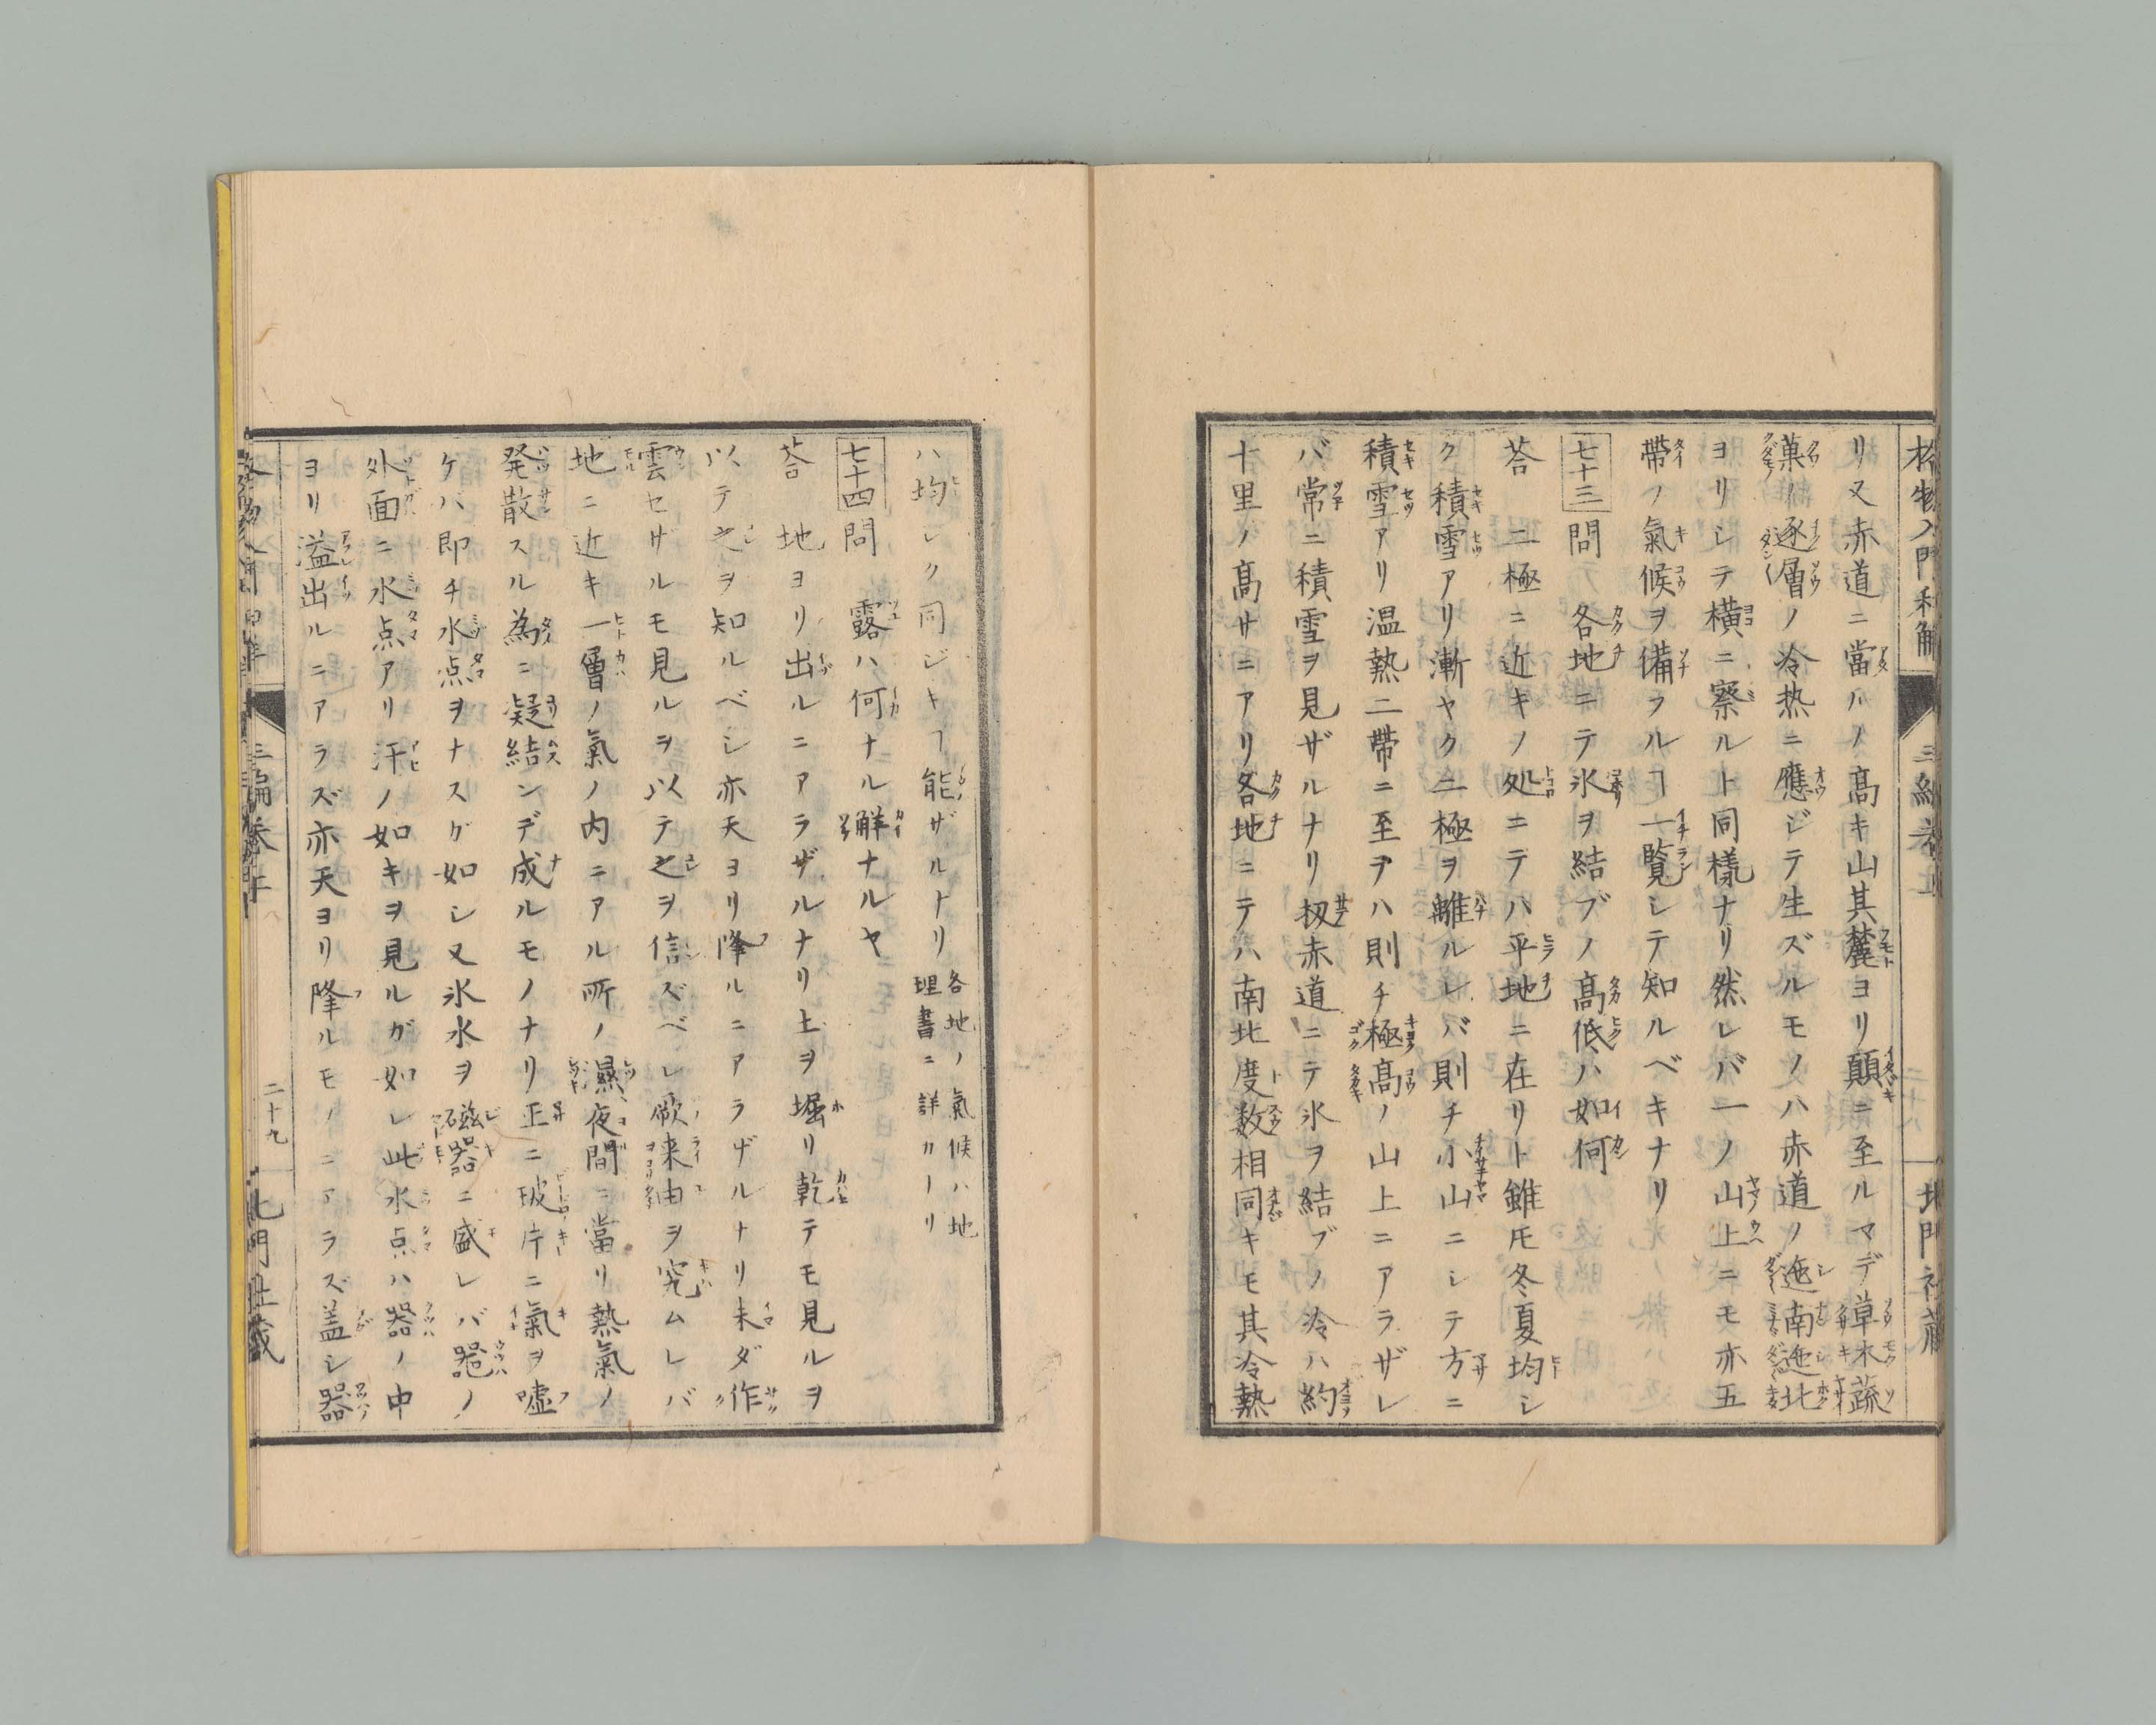 格物入門和解
三編巻上
北門社蔵
リ又赤道ニ當ハノ高キ山其麓ヨリ顛ニ至ルマデ草木蔬
菓ノ逐層ノ冷热ニ應ジテ生ズルモノハ赤道ノ迤南迤北
ヨリシテ横ニ察ルト同様ナリ然レバ一ノ山上ニモ亦五
帶ノ氣候ヲ備フルヿ一覧シテ知ルベキナリ
七十三問 各地ニテ氷ヲ結ブノ高低ハ如何
荅 二極ニ近キノ処ニテハ平地ニ在リト雖𪜈冬夏均シ
ク積雪アリ漸ヤク二極ヲ離ルレバ則チ小山ニシテ方ニ
積雪アリ温熱二帶ニ至ヲハ則チ極高ノ山上ニアラザレ
バ常ニ積雪ヲ見ザルナリ扨赤道ニテ氷ヲ結ブノ冷ハ約
十里ノ高サニアリ各地ニテハ南北度数相同キモ其冷熱
ハ均シク同ジキヿ能ザルナリ各地ノ氣候ハ地
理書ニ詳カナリ
七十四問 露ハ何ナル觧ナルヤ
荅 地ヨリ出ルニアラザルナリ土ヲ堀リ乾テモ見ルヲ
以テ之ヲ知ルベシ亦天ヨリ降ルニアラザルナリ未ダ作
雲セザルモ見ルヲ以テ之ヲ信ズベシ厥来由ヲ究ムレバ
地ニ近キ一層ノ氣ノ内ニアル所ノ濕夜間ニ當リ熱氣ノ
発散スル為ニ凝結ンデ成ルモノナリ正ニ玻片ニ氣ヲ噓
ケハ即チ水点ヲナスグ如シ又氷水ヲ磁器ニ盛レバ器ノ
外面ニ水点アリ汗ノ如キヲ見ルガ如シ此水点ハ器ノ中
ヨリ溢出ルニアラズ亦天ヨリ降ルモノニアラズ盖シ器
三編巻上
二十九
北門社蔵